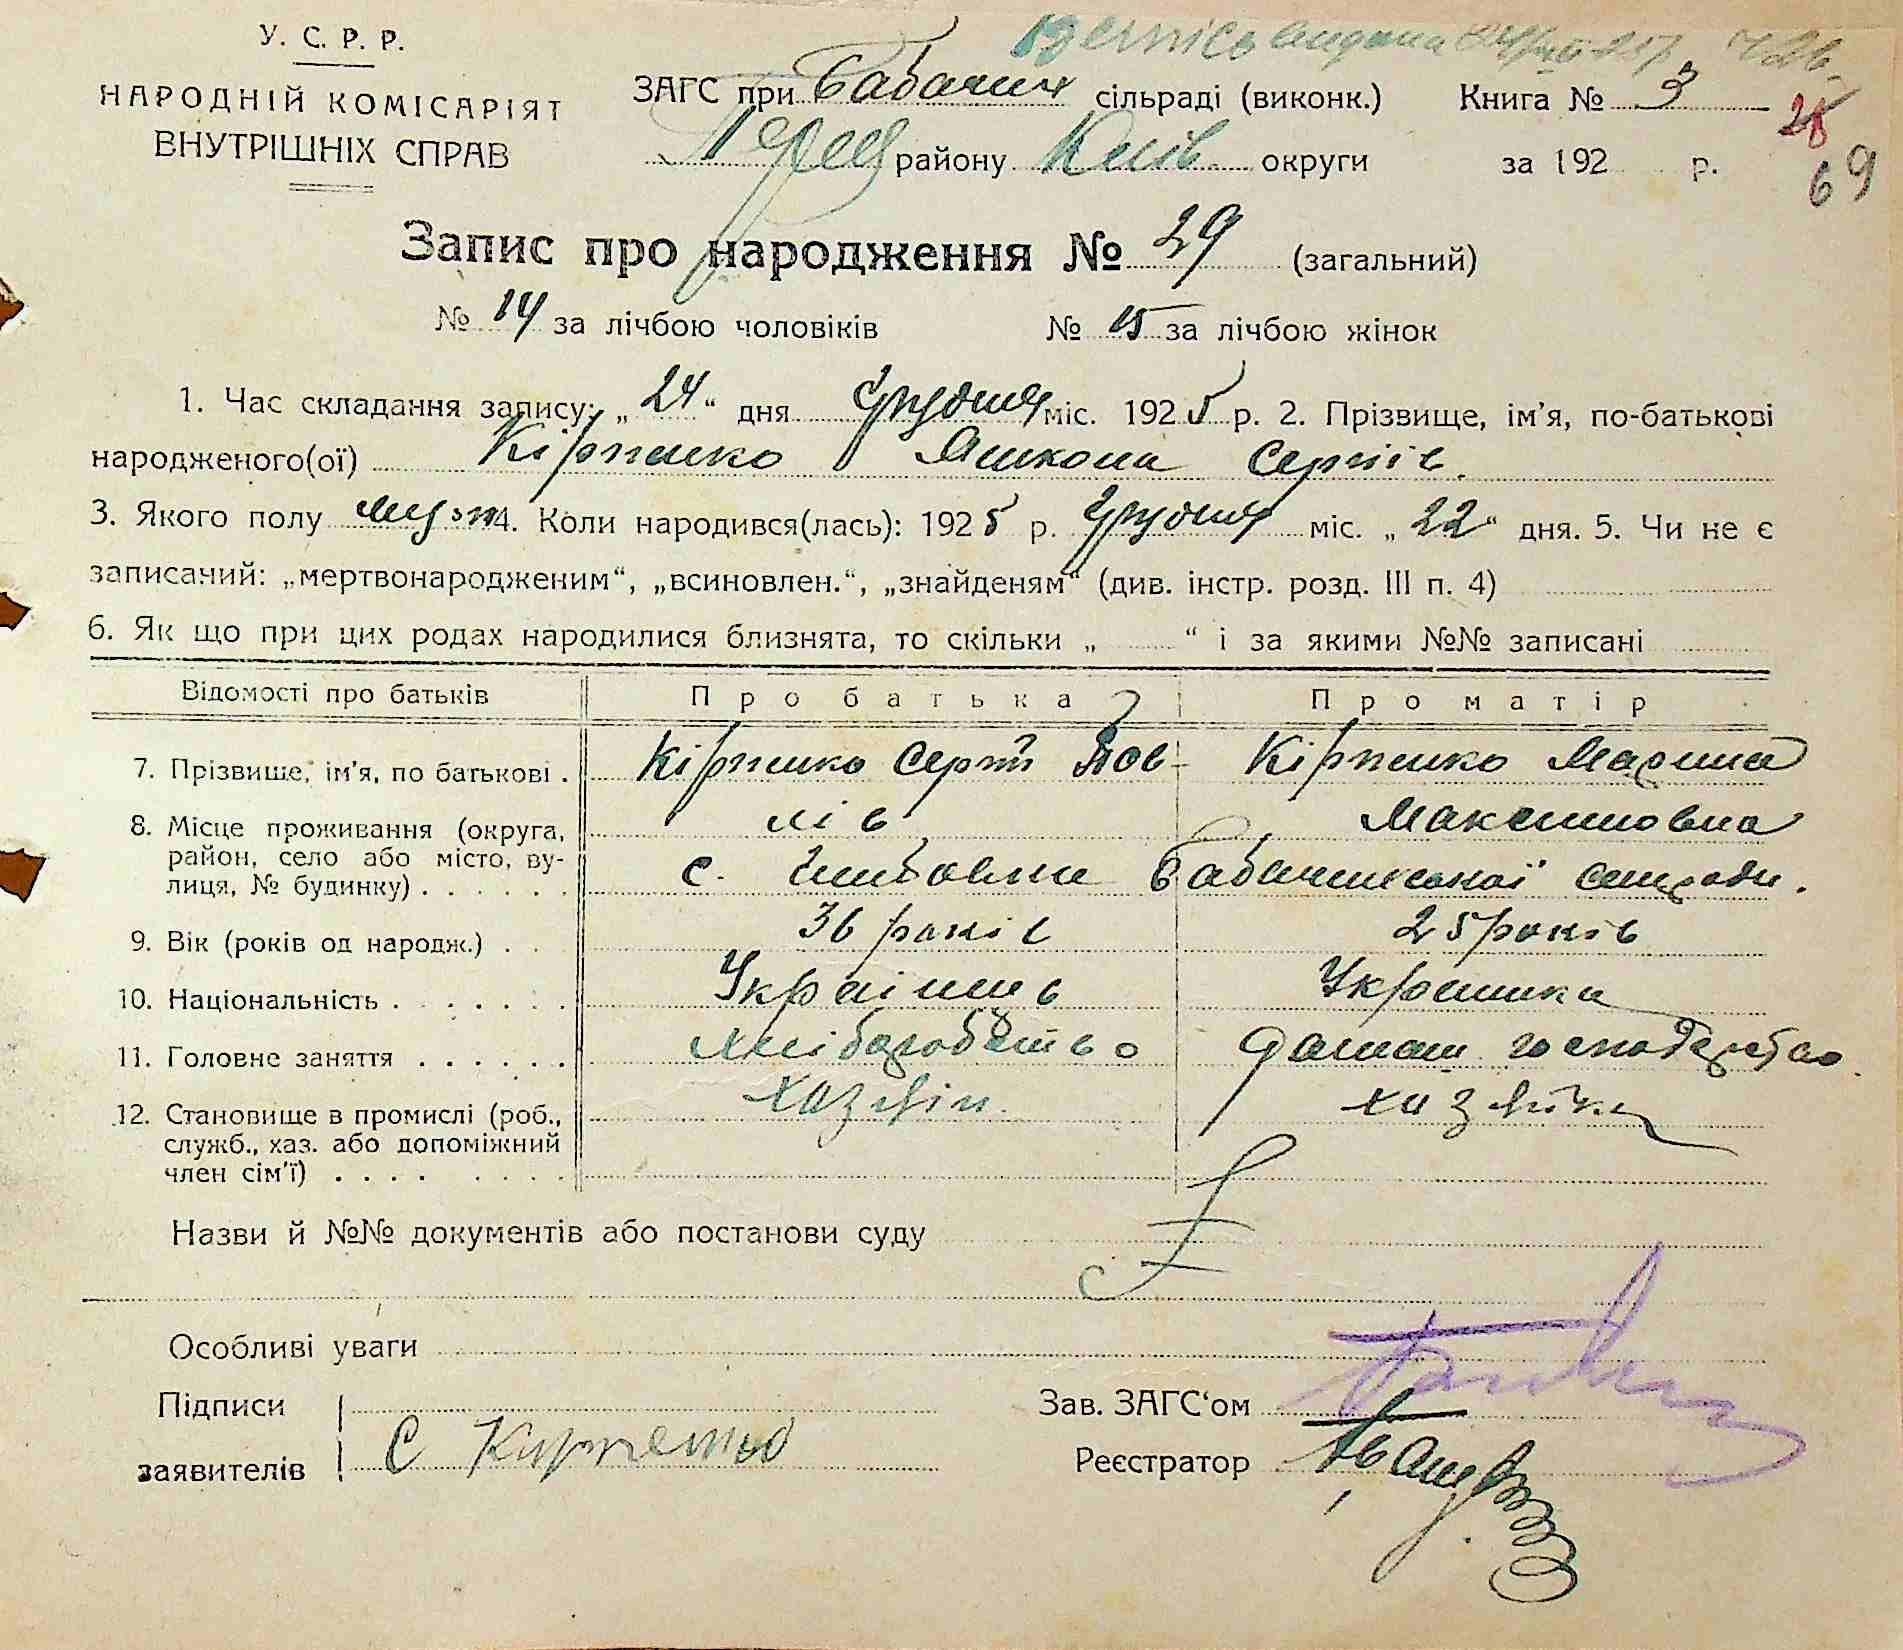 У. С. Р. Р.
НАРОДНІЙ КОМІСАРІЯТ
ВНУТРІШНІХ СПРАВ
ЗАГС при Бабачин сільраді (виконк.) Книга № 3
району Київ округи за 192 р.
28
69
Запис про народження № 29 (загальний)
№ 14 за лічбою чоловіків № 15 за лічбою жінок
1. Час складання запису: „24“ дня Грудня міс. 1925 р. 2. Прізвище, ім'я, по-батькові
народженого(ої) Кірпенко Сергіїв
3. Якого полу 4. Коли народився(лась): 1925 р. Грудня міс. „22“ дня. 5. Чи не є
записаний: „мертвонародженим“, „всиновлен.“, „знайденям“ (див. інстр. розд. III п. 4)
6. Як що при цих родах народилися близнята, то скільки „ “ і за якими №№ записані
Відомості про батьків Про батька Про матір
7. Прізвище, ім'я, по батькові . Кірпенко Сергій Пов- Кірпенко Марина
лів Максимовна
8. Місце проживання (округа, район, село або місто, ву-
лиця, № будинку) . . . . . . с. Бабачинської сільради.
9. Вік (років од народж.) . . 36 років 25 років
10. Національність . . . . . . . Українець Українка
11. Головне заняття . . . . . . хліборобство домаш господарство
12. Становище в промислі (роб., хазяїн хазяйка
служб., хаз. або допоміжний
член сім'ї) . . . . . . . .
Назви й №№ документів або постанови суду
Особливі уваги
Підписи Зав. ЗАГС'ом
заявителів С Кирпенко Реєстратор